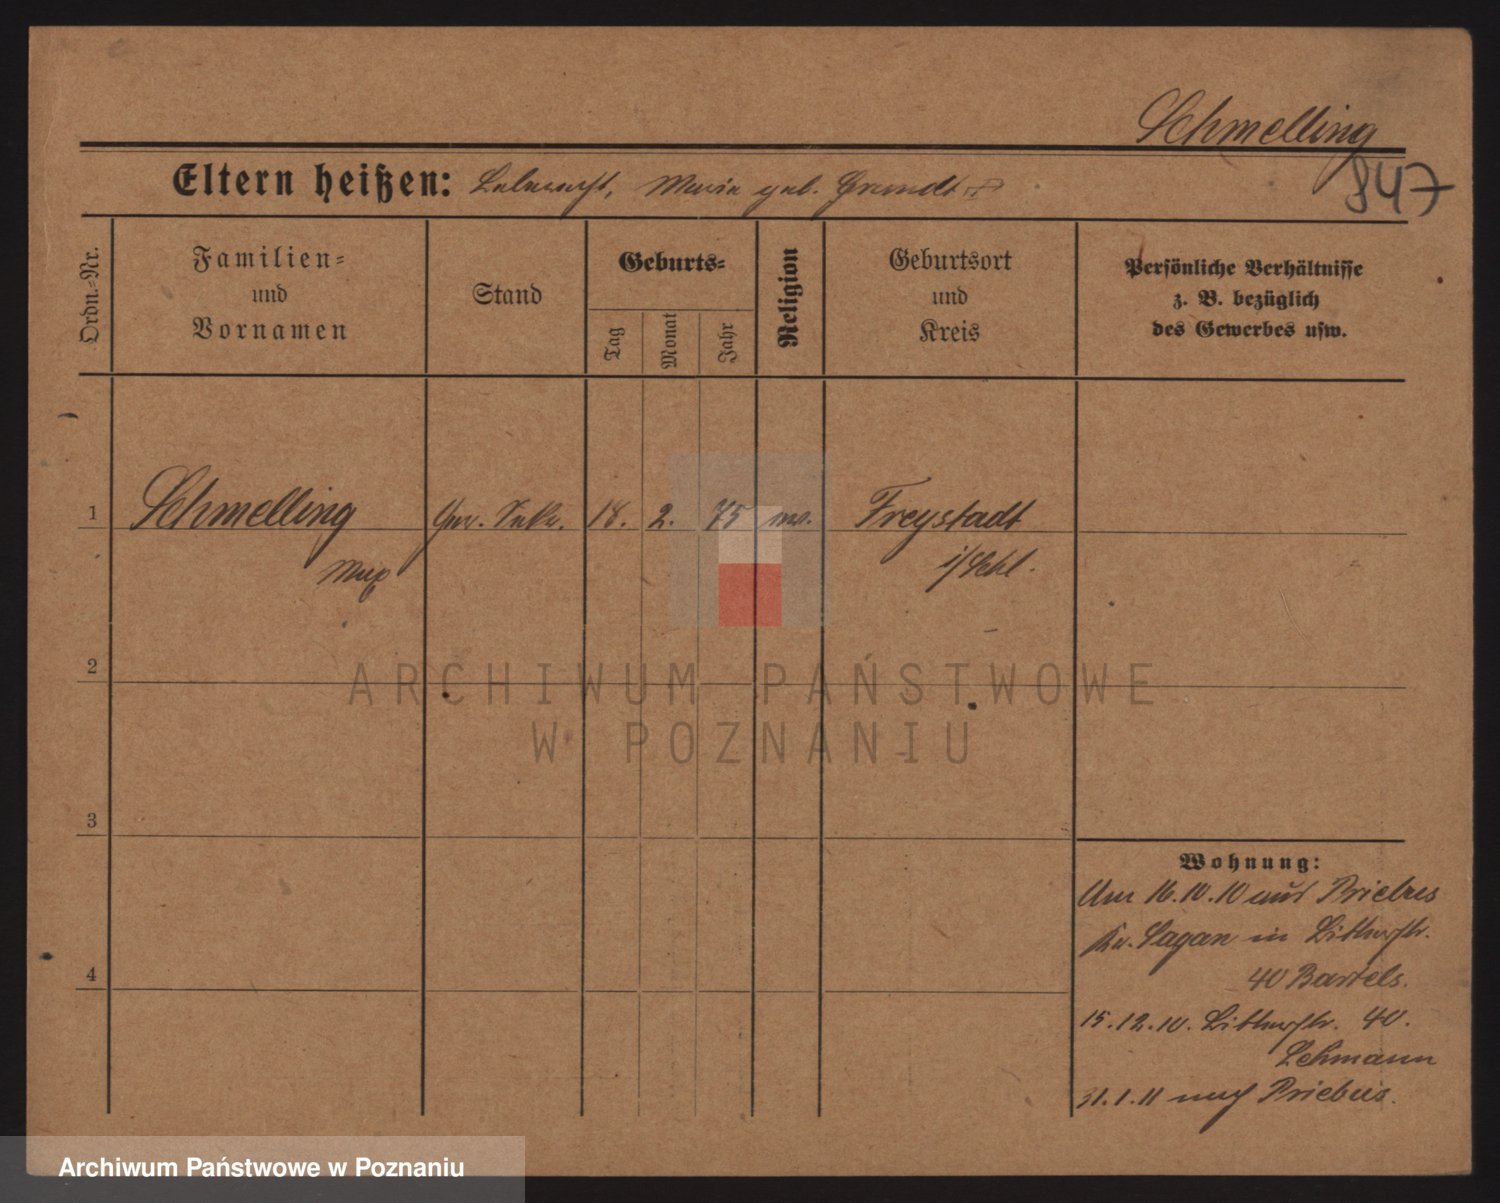 Schmelling
847
Eltern heißen: Leberecht, Marie geb. Grundt
Ordn.=Nr.
Familien=
und
Vornamen
Stand
Geburts=
Tag
Monat
Jahr
Religion
Geburtsort
und
Kreis
Persönliche Verhältnisse
z. B. bezüglich
des Gewerbes usw.
1 Schmelling 18. 2. 75 Freystadt
Max i/Schl.
2
3
4
Wohnung:
Am 16.10.10 aus Priebus
Kr. Sagan in
40 Bartels.
15.12.10. 40.
Lehmann
31.1.11 nach Priebus.
ARCHIWUM PAŃSTWOWE
W POZNANIU
Archiwum Państwowe w Poznaniu